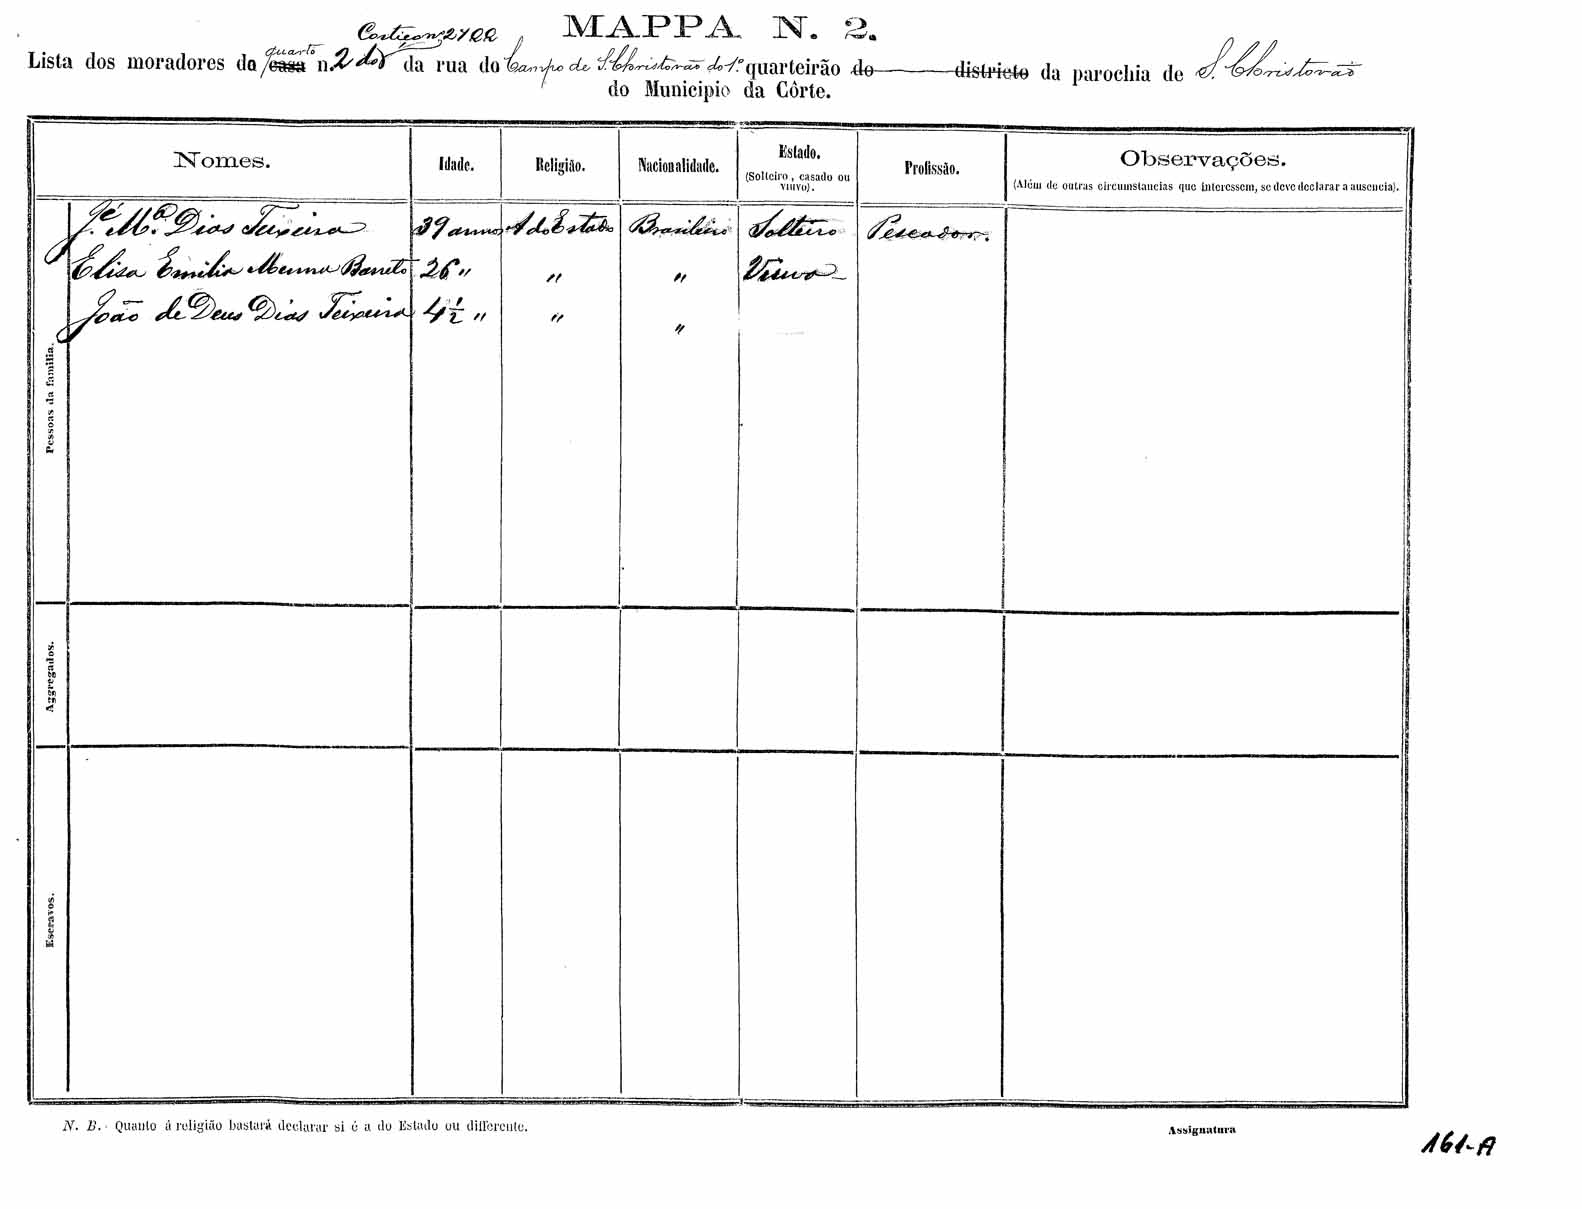 MAPPA N. 2.
Cortiço n. 27
quarto
Lista dos moradores do casa n. 2 do da rua do Campo de S. Christovão do 1.º quarteirão do districto da parochia de S. Christovão
do Municipio da Côrte.
Nomes. Idade. Religião. Nacionalidade. Estado. (Solteiro, casado ou viuvo). Profissão. Observações. (Além de outras circumstancias que interessem, se deve declarar a ausencia).
Pessoas da familia.
Jé. Mª. Dias Teixeira 39 annos A do Estado Brasileiro Solteiro Pescador.
Elisa Emilia Menna Barreto 26 " " " Viuva
João de Deus Dias Teixeira 4 1/2 " " "
Aggregados.
Escravos.
N. B. - Quanto á religião bastará declarar si é a do Estado ou differente.
Assignatura
161-A